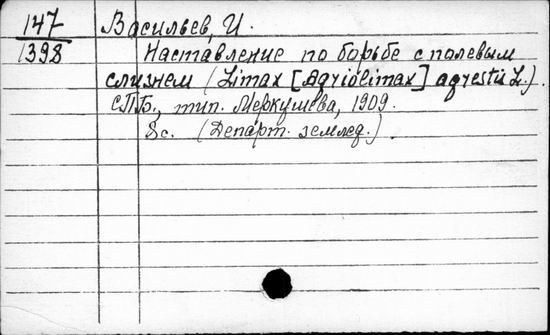 147 Васильев, И.
1398 Наставление по борьбе с полевым
слизнем (Limax [Agriolimax] agrestis L.).
СПБ., тип. Меркушева, 1909.
8с. (Департ. землед.)